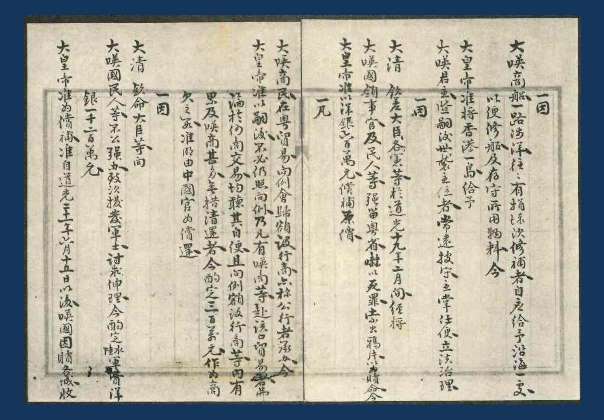 一因
大𠸄商船遠路涉洋往往有損壞須修補者自應給予沿海一處
以便修船及存守所用物料今
大皇帝准將香港一島給予
大𠸄君主暨嗣後世襲主位者常遠據守主掌任便立法治理
一因
大清欽差大臣各憲等於道光十九年二月間經將
大𠸄國領事官及民人等強留粵省嚇以死罪索出鴉片以為贖命今
大皇帝准以洋銀六百萬元償補原價
一凡
大𠸄商民在粵貿易向例全歸額設行商亦稱公行者承辦今
大皇帝准以嗣後不必仍照向例乃凡有𠸄商等赴該口貿易者無
論與何商交易均聽其自便且向例額設行商等內有
累及𠸄商甚多無措清還者今酌定三百萬元作為商
欠之數准明由中國官為償還
一因
大清欽命大臣等向
大𠸄國民人等不公強辦致須撥發軍士討求伸理今酌定水陸軍費洋
銀一千二百萬元
大皇帝准為償補惟自道光二十一年六月十五日以後𠸄國因贖各城收